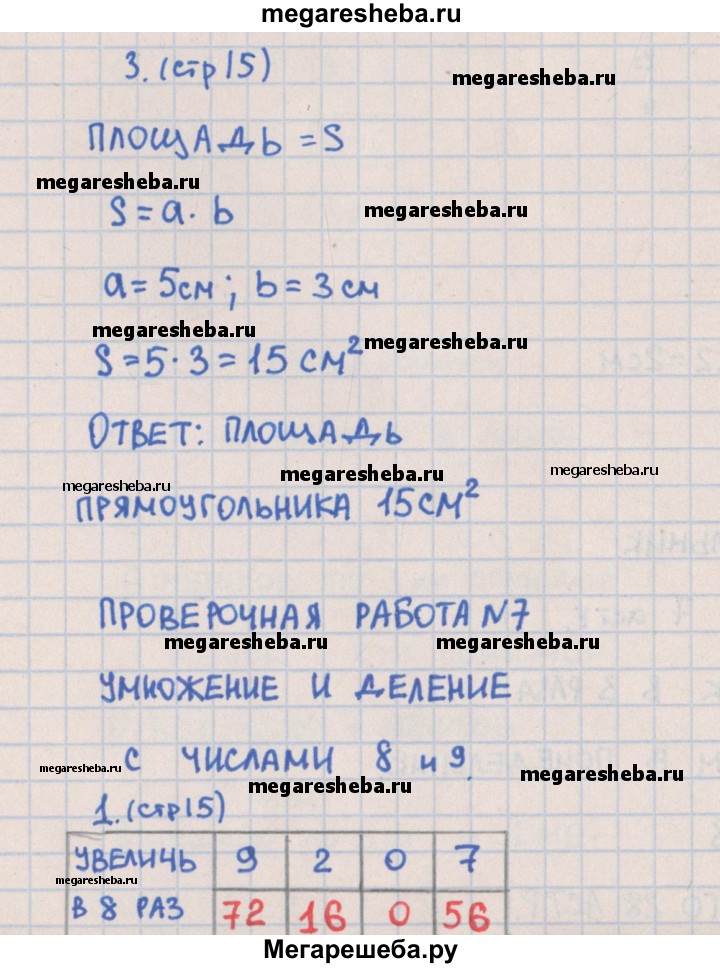 megaresheba.ru
3. (стр 15)
megaresheba.ru
ПЛОЩАДЬ = S
megaresheba.ru
S = a · b
megaresheba.ru
a = 5см; b = 3 см
megaresheba.ru
megaresheba.ru
S = 5 · 3 = 15 см²
ОТВЕТ: ПЛОЩАДЬ
megaresheba.ru
megaresheba.ru
megaresheba.ru
ПРЯМОУГОЛЬНИКА 15 см²
ПРОВЕРОЧНАЯ РАБОТА №7
megaresheba.ru
megaresheba.ru
УМНОЖЕНИЕ И ДЕЛЕНИЕ
С ЧИСЛАМИ 8 и 9.
megaresheba.ru
megaresheba.ru
megaresheba.ru
1. (стр 15)
УВЕЛИЧЬ 9 2 0 7
megaresheba.ru
В 8 РАЗ 72 16 0 56
Мегарешеба.ру